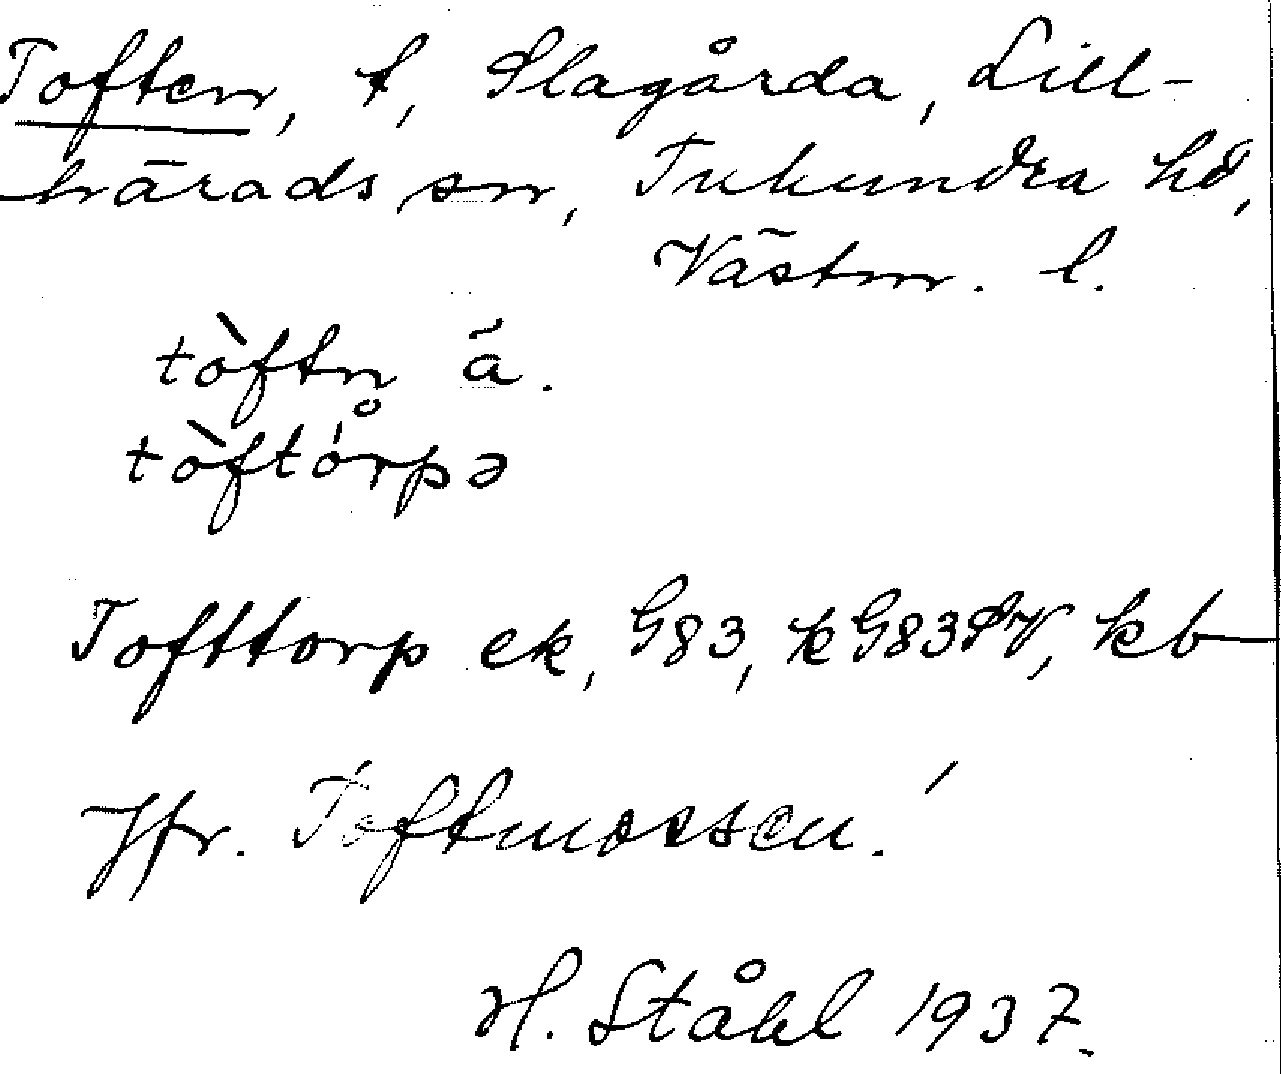 Toften, t, Slagårda, Lill-
härads sn, Tuhundra hd,
Västm. l.
tòftn ā.
tòftå̀rpə
Tofttorp ek, G83, kG83SV, kb
Jfr. Toftmossen!
H. Ståhl 1937.